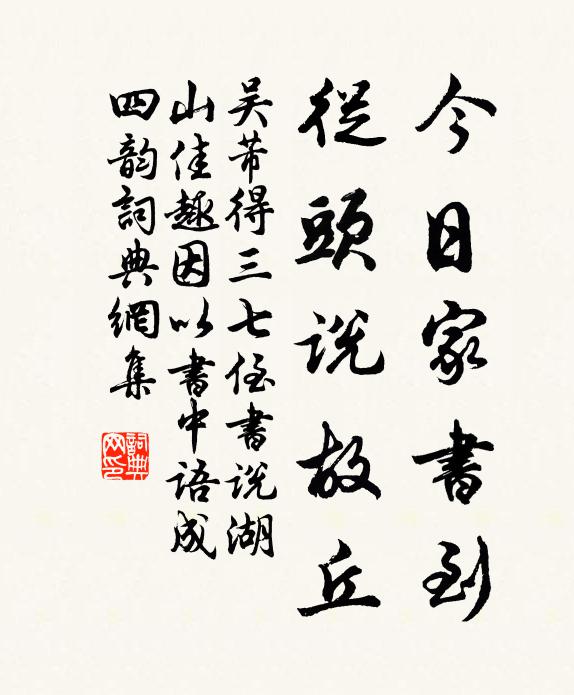 今日家書到
從頭説故丘
吴芾得三七侄書説湖
山佳趣因以書中語成
四韵詞典網集
詞典网印